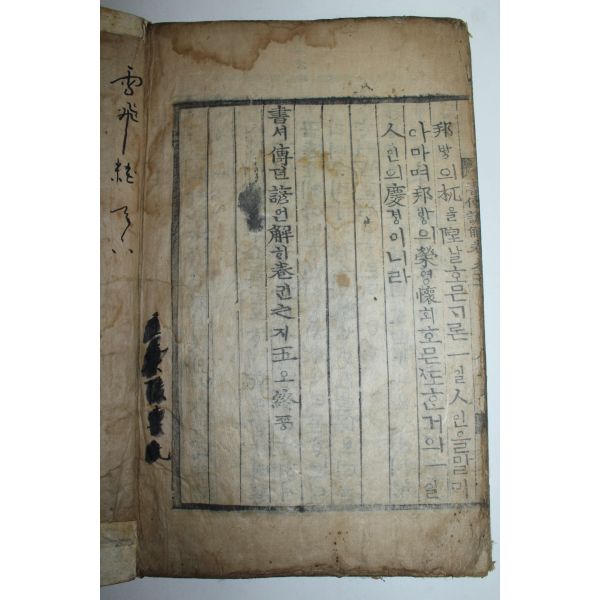 邦방의杌올隉날호믄ᄀᆞ론一일人인을말ᄆᆡ
아마며邦방의榮영懷회호믄ᄯᅩᄒᆞᆫ거의一일
人인의慶경이니라
書셔傳뎐諺언解ᄒᆡ卷권之지五오終죵
雪飛